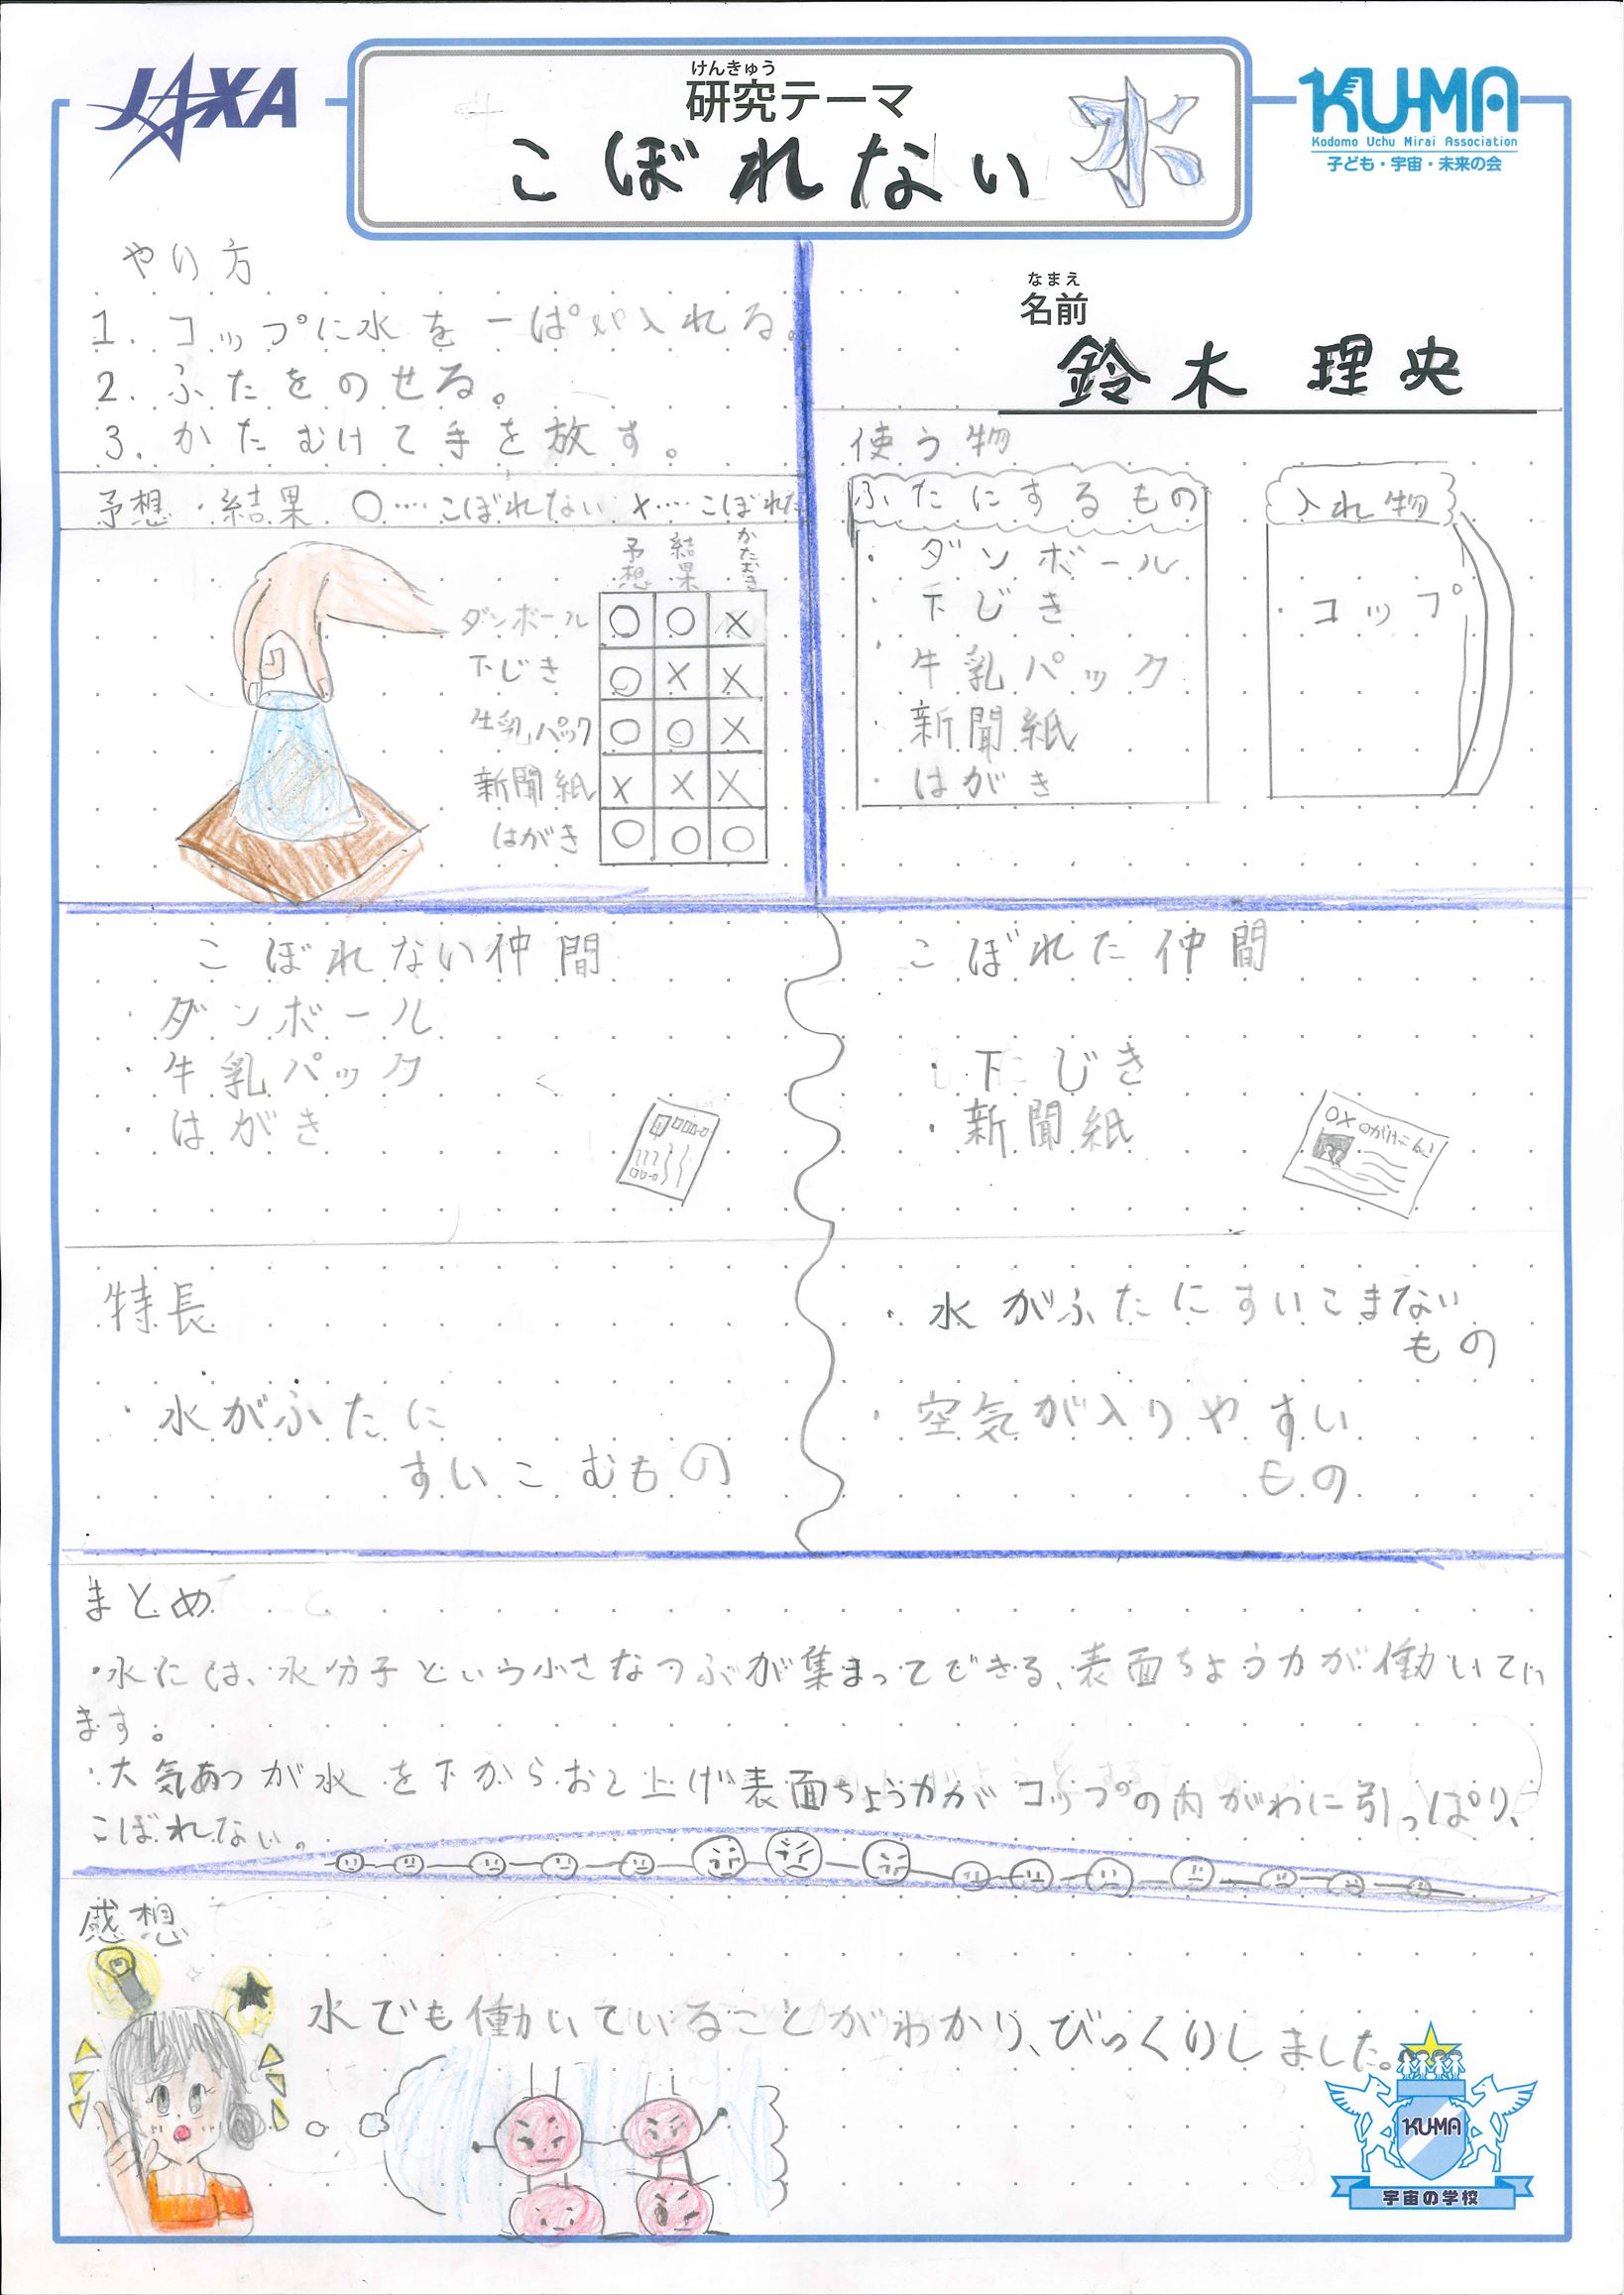 JAXA
けんきゅう
研究テーマ
こぼれない水
KU-MA
Kodomo Uchu Mirai Association
子ども・宇宙・未来の会
やり方
1. コップに水を一ぱい入れる。
2. ふたをのせる。
3. かたむけて手を放す。
なまえ
名前
鈴木 理央
予想・結果 ○‥‥こぼれない ×‥‥こぼれた
予想 結果 かたむき
ダンボール ○ ○ ×
下じき ○ × ×
牛乳パック ○ ○ ×
新聞紙 × × ×
はがき ○ ○ ○
使う物
ふたにするもの
・ダンボール
・下じき
・牛乳パック
・新聞紙
・はがき
入れ物
・コップ
こぼれない仲間
・ダンボール
・牛乳パック
・はがき
こぼれた仲間
・下じき
・新聞紙
特長
・水がふたに
すいこむもの
・水がふたにすいこまない
もの
・空気が入りやすい
もの
まとめ
・水には、水分子という小さなつぶが集まってできる、表面ちょう力が働いてい
ます。
・大気あつが水を下からおし上げ表面ちょう力がコップの内がわに引っぱり、
こぼれない。
感想
水でも働いていることがわかり、びっくりしました。
KU-MA
宇宙の学校